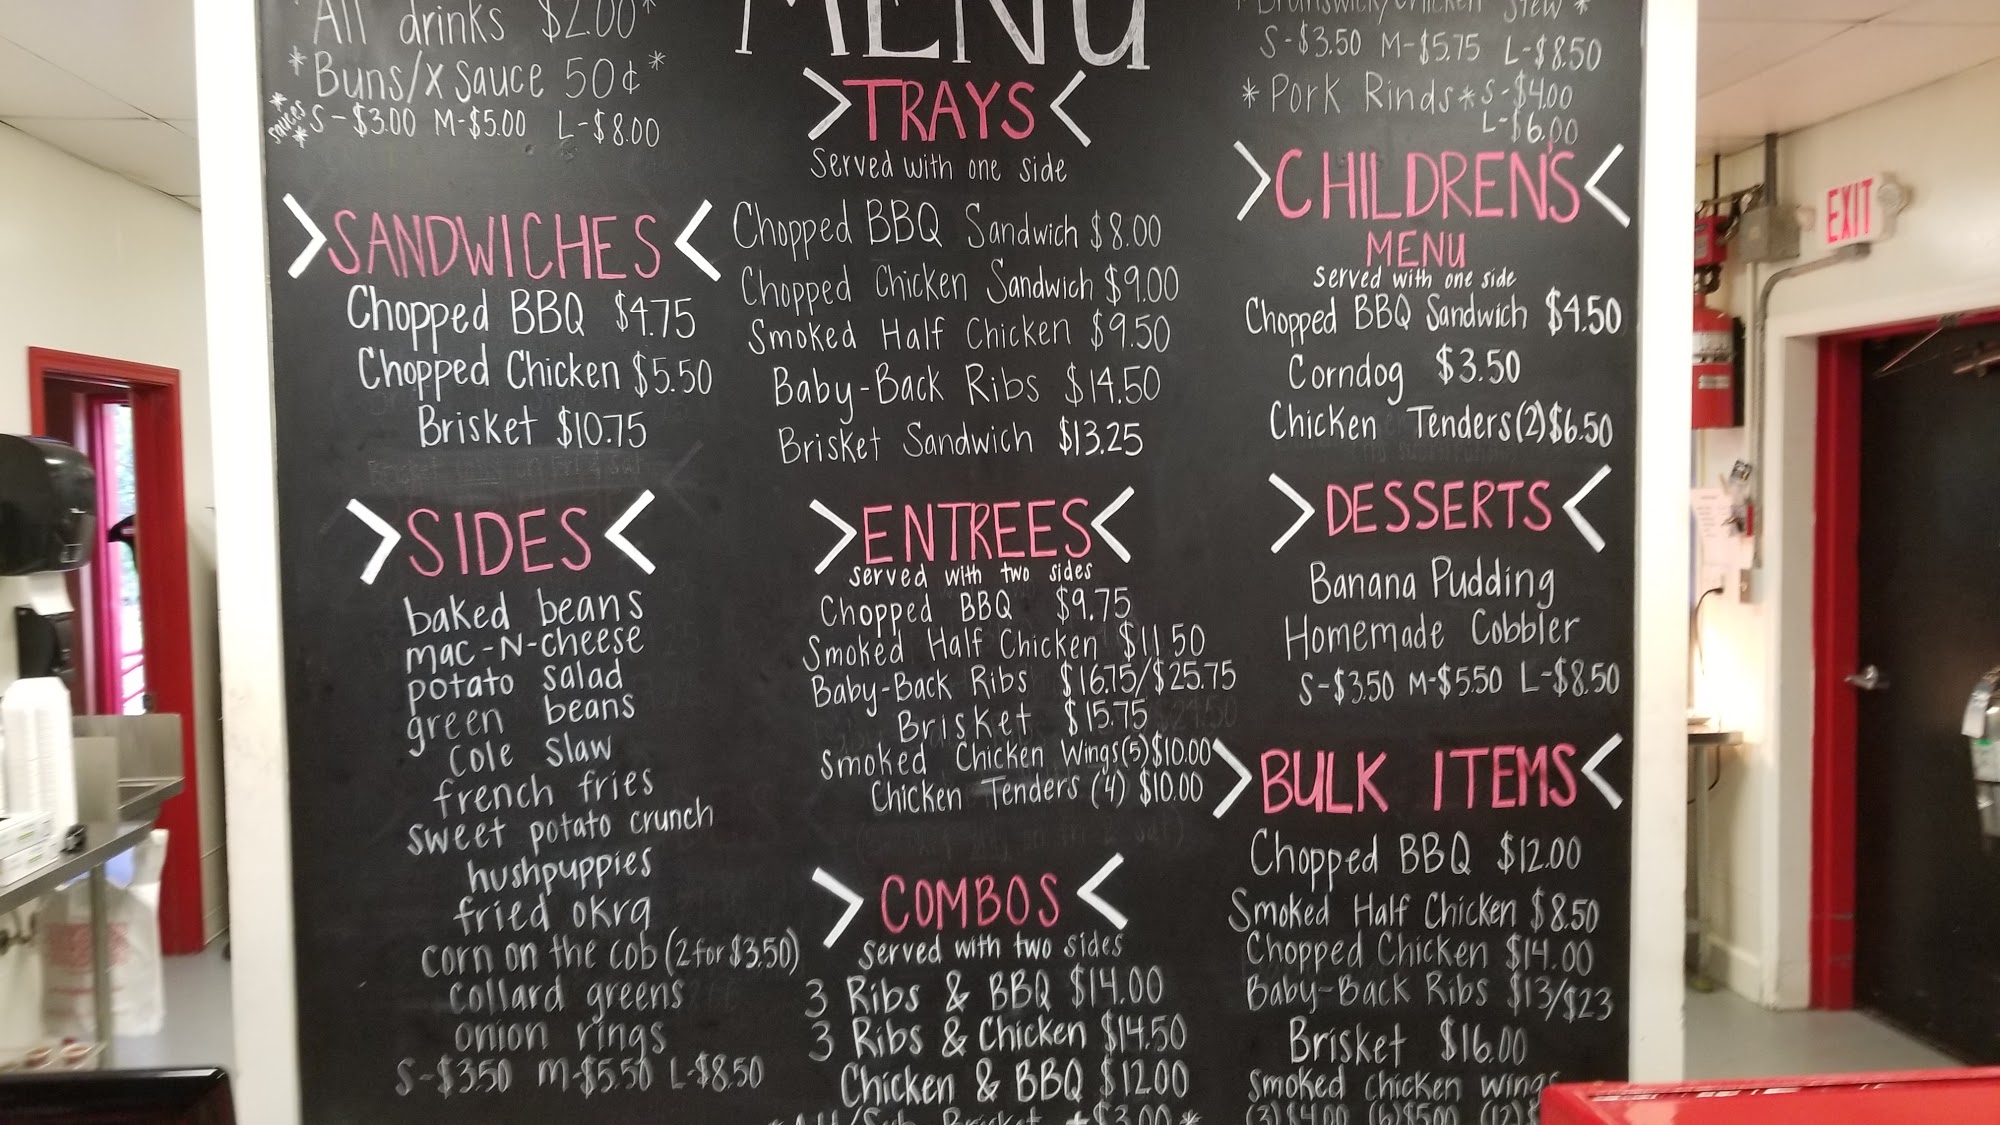 All drinks $2.00*
*Buns/x sauce 50¢*
*sauces* S-$3.00 M-$5.00 L-$8.00
SANDWICHES
Chopped BBQ $4.75
Chopped Chicken $5.50
Brisket $10.75
SIDES
baked beans
mac-N-cheese
potato salad
green beans
Cole Slaw
french fries
sweet potato crunch
hushpuppies
fried okra
corn on the cob (2 for $3.50)
collard greens
onion rings
S-$3.50 M-$5.50 L-$8.50
MENU
TRAYS
Served with one side
Chopped BBQ Sandwich $8.00
Chopped Chicken Sandwich $9.00
Smoked Half Chicken $9.50
Baby-Back Ribs $14.50
Brisket Sandwich $13.25
ENTREES
served with two sides
Chopped BBQ $9.75
Smoked Half Chicken $11.50
Baby-Back Ribs $16.75/$25.75
Brisket $15.75
Smoked Chicken Wings(5)$10.00
Chicken Tenders (4) $10.00
COMBOS
served with two sides
3 Ribs & BBQ $14.00
3 Ribs & Chicken $14.50
Chicken & BBQ $12.00
Brisket +$3.00*
Brunswick/Chicken Stew*
S-$3.50 M-$5.75 L-$8.50
*Pork Rinds* S-$4.00
L-$6.00
CHILDREN'S
MENU
served with one side
Chopped BBQ Sandwich $4.50
Corndog $3.50
Chicken Tenders(2)$6.50
DESSERTS
Banana Pudding
Homemade Cobbler
S-$3.50 M-$5.50 L-$8.50
BULK ITEMS
Chopped BBQ $12.00
Smoked Half Chicken $8.50
Chopped Chicken $14.00
Baby-Back Ribs $13/$23
Brisket $16.00
Smoked chicken wings
(3)$4.00 (6)$5.00 (12)$
EXIT